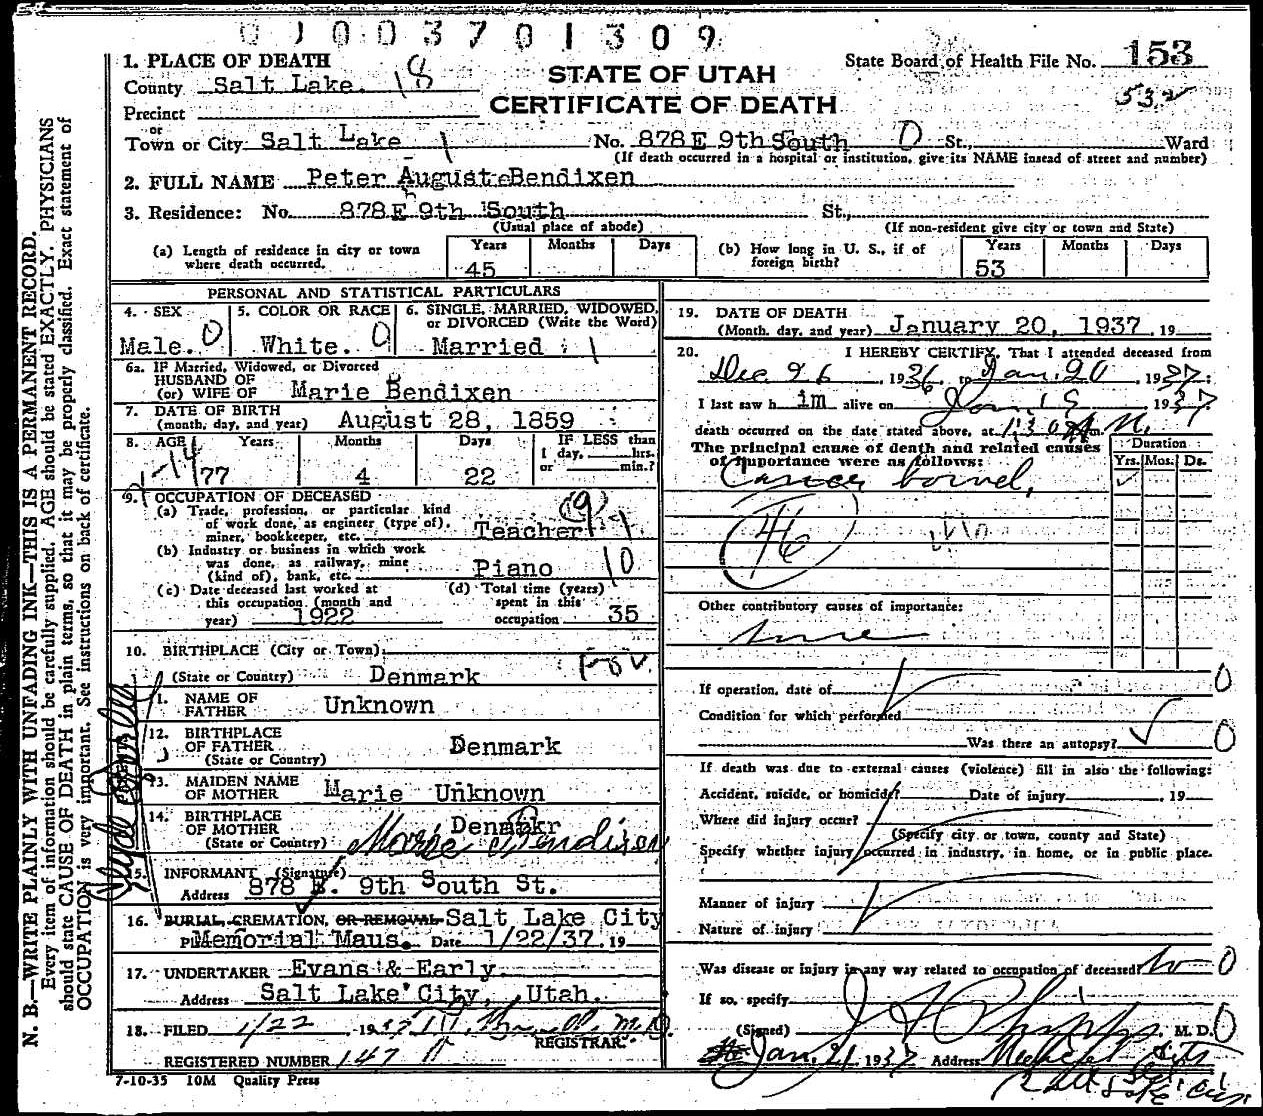 0 1 0 0 3 7 0 1 3 0 9
1. PLACE OF DEATH
County Salt Lake. 18
Precinct
or
Town or City Salt Lake 1
STATE OF UTAH
CERTIFICATE OF DEATH
State Board of Health File No. 153
532
No. 878 E 9th South 0 St., Ward
(If death occurred in a hospital or institution, give its NAME insead of street and number)
2. FULL NAME Peter August Bendixen
3. Residence: No. 878 E 9th South St.,
(Usual place of abode) (If non-resident give city or town and State)
(a) Length of residence in city or town where death occurred. Years 45 Months Days
(b) How long in U. S., if of foreign birth? Years 53 Months Days
PERSONAL AND STATISTICAL PARTICULARS
4. SEX
Male. 0
5. COLOR OR RACE
White. 0
6. SINGLE, MARRIED, WIDOWED,
or DIVORCED (Write the Word)
Married 1
6a. IF Married, Widowed, or Divorced
HUSBAND OF
(or) WIFE OF Marie Bendixen
7. DATE OF BIRTH
(month, day, and year) August 28, 1859
8. AGE Years Months Days IF LESS than
1 day, hrs.
or min.?
1-14 77 4 22
9. OCCUPATION OF DECEASED
(a) Trade, profession, or particular kind
of work done, as engineer (type of),
miner, bookkeeper, etc. Teacher
(b) Industry or business in which work
was done, as railway, mine
(kind of), bank, etc. Piano 10
(c) Date deceased last worked at
this occupation (month and
year) 1922
(d) Total time (years)
spent in this
occupation 35
10. BIRTHPLACE (City or Town)
(State or Country) Denmark
11. NAME OF
FATHER Unknown
12. BIRTHPLACE
OF FATHER
(State or Country) Denmark
13. MAIDEN NAME
OF MOTHER Marie Unknown
14. BIRTHPLACE
OF MOTHER
(State or Country) Denmakr
PARENTS
Marie Bendixen
15. INFORMANT (Signature)
Address 878 E. 9th South St.
16. BURIAL, CREMATION, OR REMOVAL Salt Lake City
Memorial Maus. Date 1/22/37, 19
17. UNDERTAKER Evans & Early
Address Salt Lake City, Utah.
18. FILED 1/22 1937 M.D.
REGISTRAR.
REGISTERED NUMBER 147
7-10-35 10M Quality Press
19. DATE OF DEATH
(Month, day, and year) January 20, 1937 , 19
20. I HEREBY CERTIFY, That I attended deceased from
Dec 26, 1936 to Jan. 20, 1937:
I last saw h im alive on Jan. 19 1937.
death occurred on the date stated above, at 1:30 m.
The principal cause of death and related causes
of importance were as follows:
Duration
Yrs. Mos. Ds.
Cancer bowel,
46
Other contributory causes of importance:
none
If operation, date of 0
Condition for which performed
Was there an autopsy? 0
If death was due to external causes (violence) fill in also the following:
Accident, suicide, or homicide? Date of injury , 19
Where did injury occur?
(Specify city or town, county and State)
Specify whether injury occurred in industry, in home, or in public place.
Manner of injury
Nature of injury
Was disease or injury in any way related to occupation of deceased? No 0
If so, specify
(Signed) M. D. 0
Jan. 21 1937 Address Medical Arts
N. B.—WRITE PLAINLY WITH UNFADING INK—THIS IS A PERMANENT RECORD.
Every item of information should be carefully supplied. AGE should be stated EXACTLY. PHYSICIANS
should state CAUSE OF DEATH in plain terms, so that it may be properly classified. Exact statement of
OCCUPATION is very important. See instructions on back of certificate.